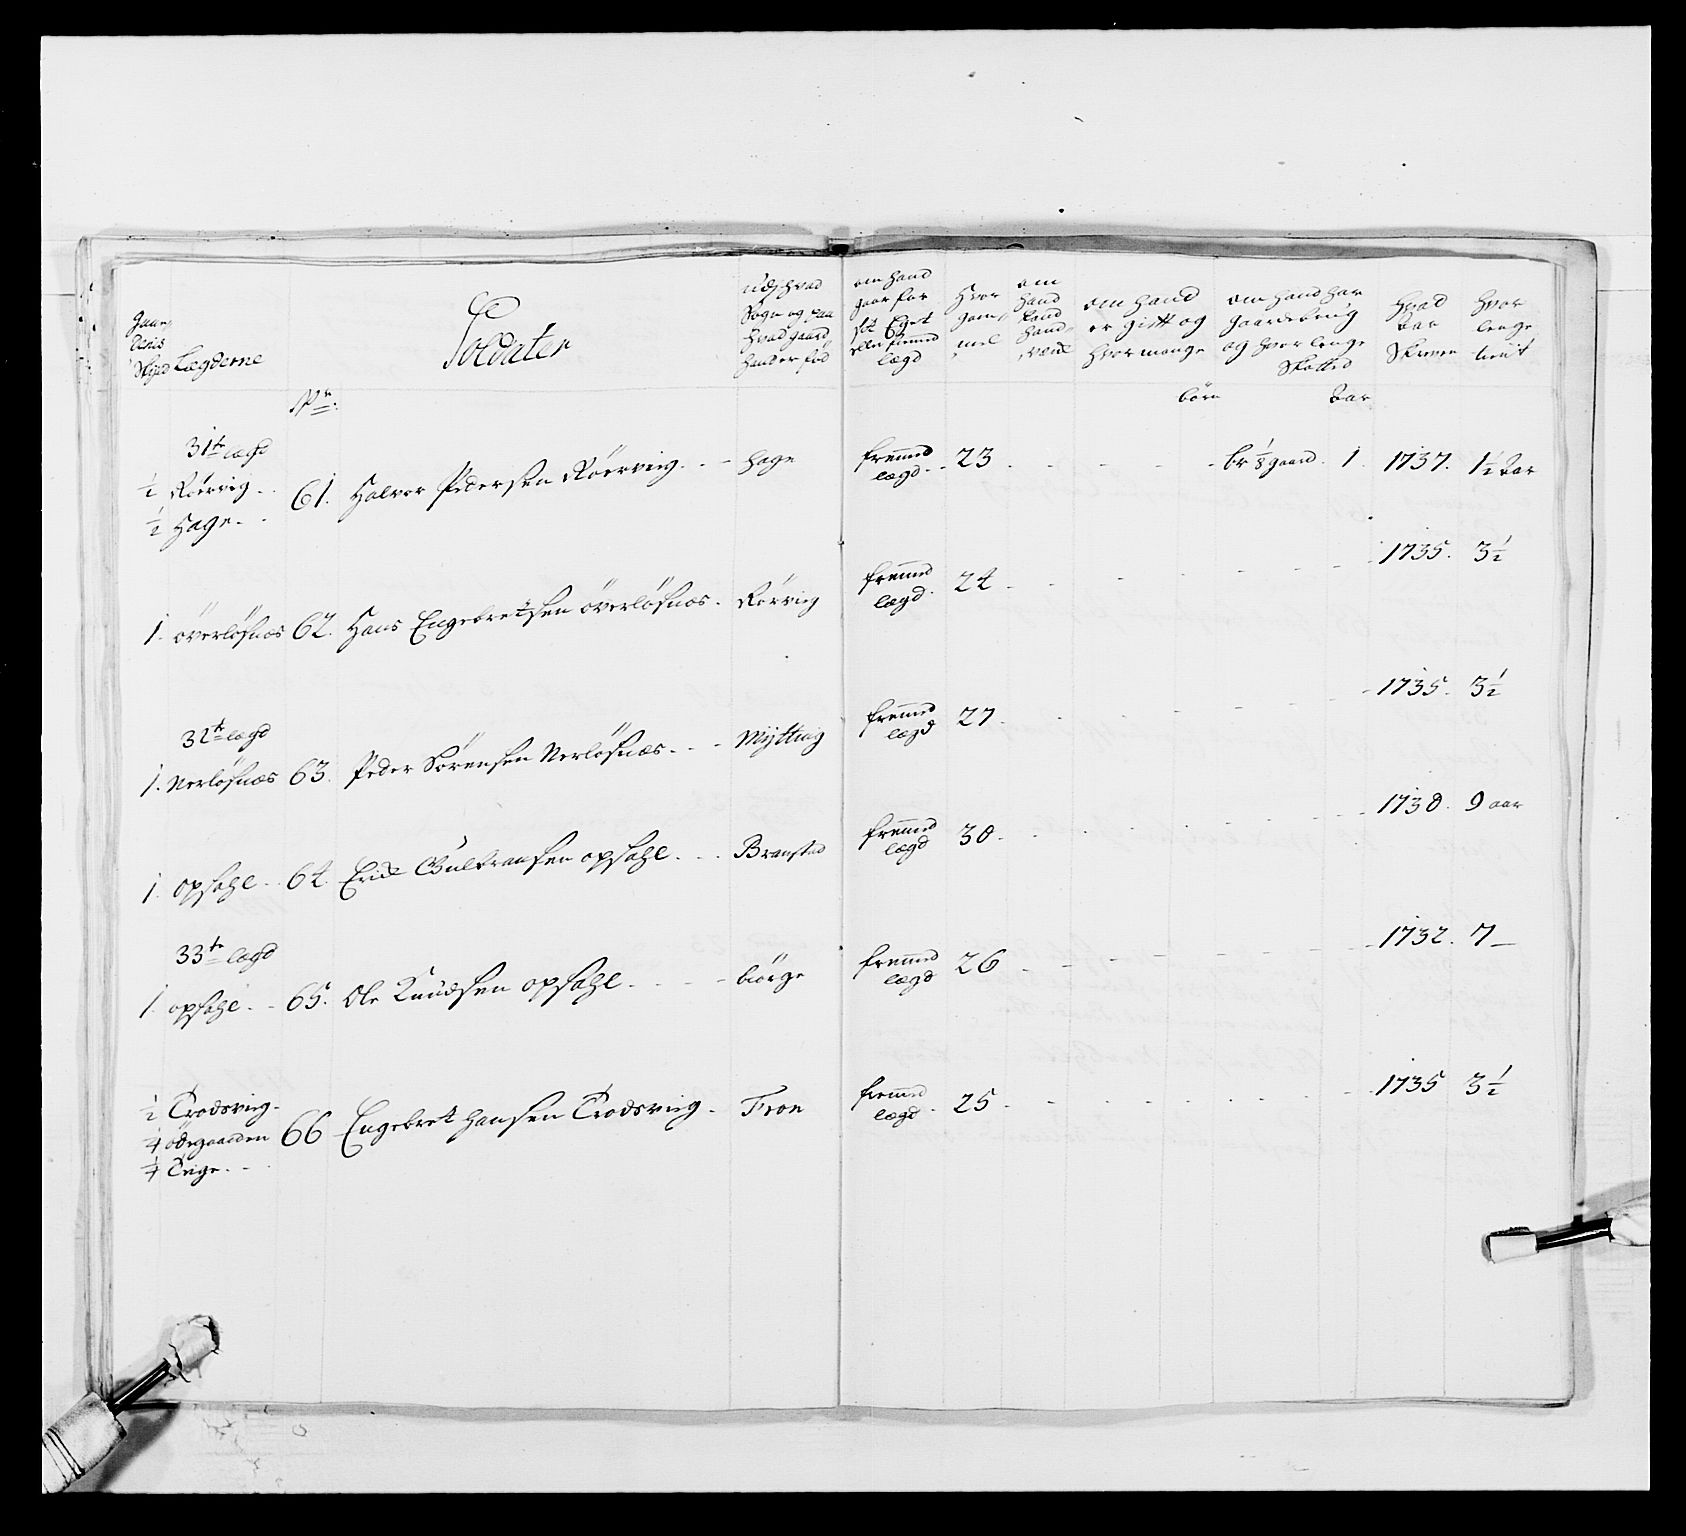 Gaar,
denis
Skyld Lægderne
Soldater
udj hvad
Sogn og paa
hvad gaard
hand er fød
om hand
gaar for
sit Eget
eller fremmed
lægd
Hvor
gam,,
mel
om
hand
kand
hand,,
værk
om hand
er gift og
hvor mange
børn
om hand har
gaardebrug
og hvor lenge
Skatted
Aar
Hvad
Aar
Skreven
Hvor
lenge
tient
No:
31te lægd
1/2 Röervig
1/2 Hage
61. Halvor Pedersen Röervig - Hage fremmed lægd 23 - br 1/8 gaard 1. 1737. 1 1/2 Aar
1. överlösnæs 62. Hans Engebretsen överlösnæs. Rörvig fremmed lægd. 24 - 1735. 3 1/2
32te lægd
1. Nerlösnæs 63. Peder Sörensen Nerlösnæs - Mytting fremmed lægd 27 - 1735. 3 1/2
1. opsahl 64. Erich Gulbransen opsahl - Branstad fremmed lægd 30 - 1730. 9 aar
33te lægd
1. opsahl 65. Ole Knudsen opsahl - börge fremmed lægd 26 - 1732. 7
1/2 Trodsvig
1/4 ödegaarden
1/4 Teige
66 Engebret Hansen Trodsvig - Tron fremmed lægd 25 - 1735 3 1/2